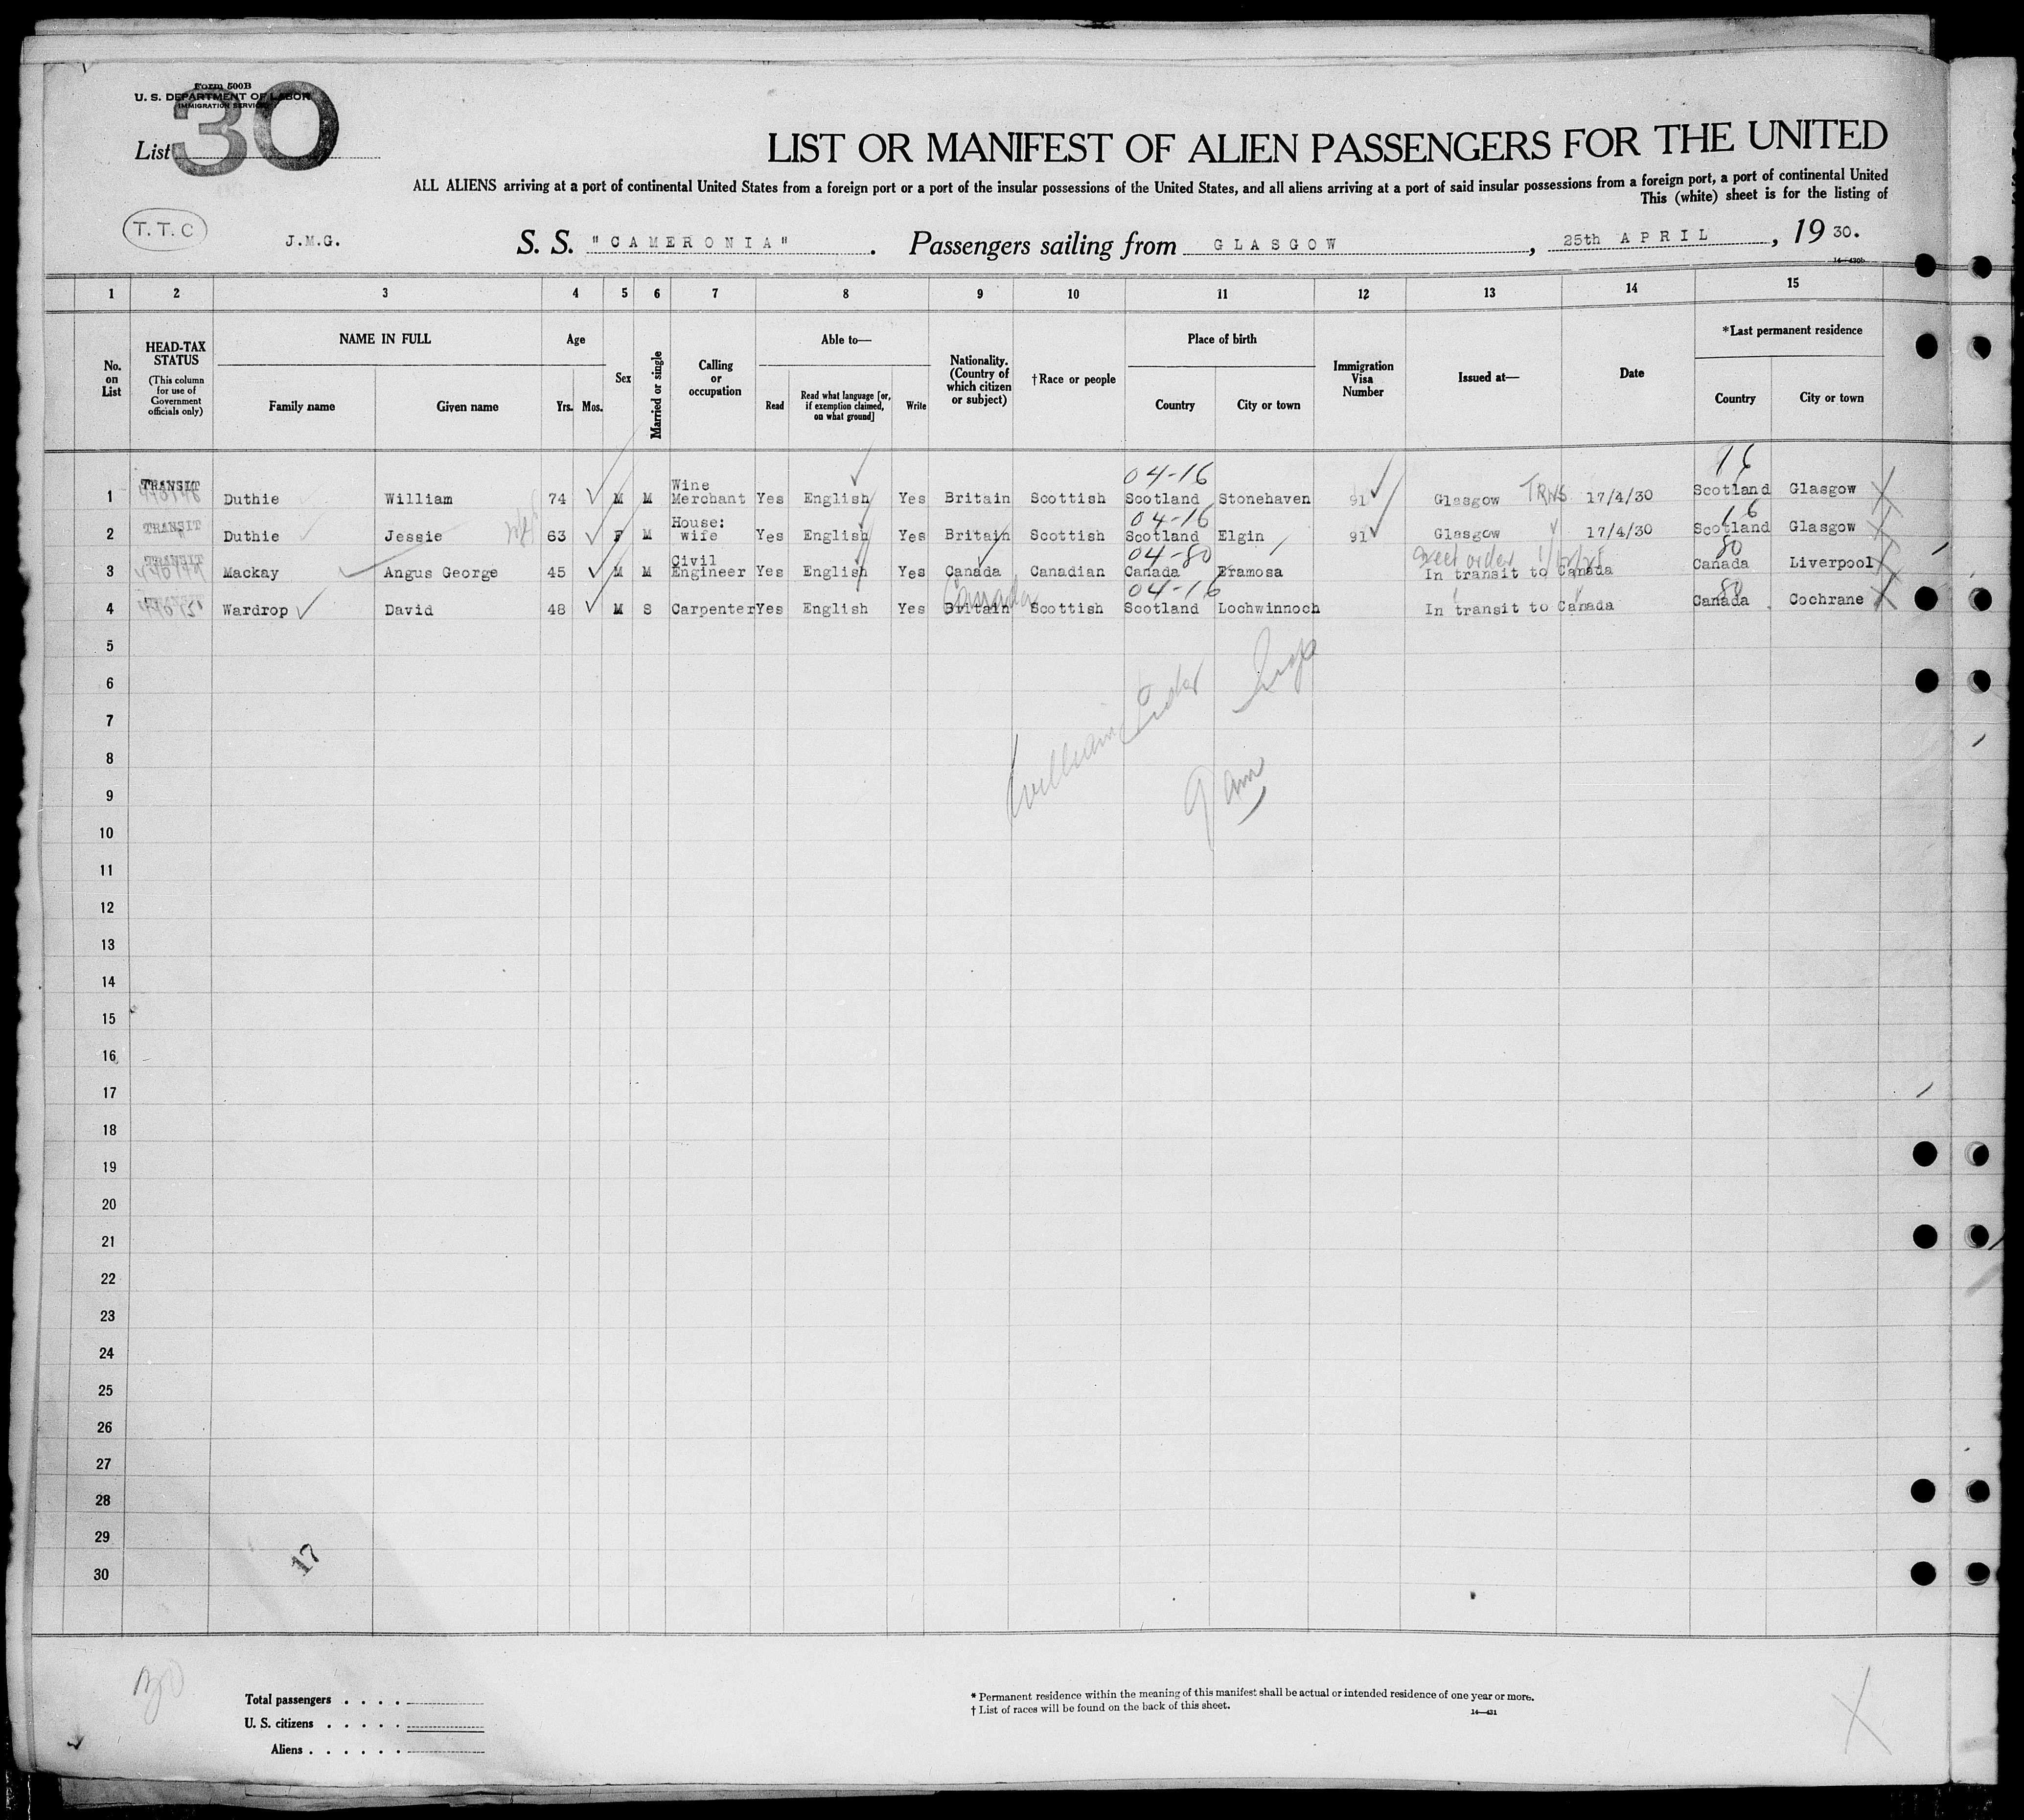 Form 500B
U. S. DEPARTMENT OF LABOR
IMMIGRATION SERVICE
List 30
LIST OR MANIFEST OF ALIEN PASSENGERS FOR THE UNITED
ALL ALIENS arriving at a port of continental United States from a foreign port or a port of the insular possessions of the United States, and all aliens arriving at a port of said insular possessions from a foreign port, a port of continental United
This (white) sheet is for the listing of
T.T.C J.M.G. S. S. "CAMERONIA". Passengers sailing from GLASGOW, 25th APRIL, 1930.
14—430b
1 2 3 4 5 6 7 8 9 10 11 12 13 14 15
No. on List
HEAD-TAX STATUS
(This column for use of Government officials only)
NAME IN FULL
Family name Given name
Age
Yrs. Mos.
Sex
Married or single
Calling or occupation
Able to—
Read
Read what language [or, if exemption claimed, on what ground]
Write
Nationality. (Country of which citizen or subject)
†Race or people
Place of birth
Country City or town
Immigration Visa Number
Issued at—
Date
*Last permanent residence
Country City or town
04-16 16
1 TRANSIT Duthie William 74 M M Wine Merchant Yes English Yes Britain Scottish Scotland Stonehaven 91 Glasgow TRNS 17/4/30 Scotland Glasgow
04-16 16
2 TRANSIT Duthie Jessie 63 F M House: wife Yes English Yes Britain Scottish Scotland Elgin 91 Glasgow 17/4/30 Scotland Glasgow
04-80 80
3 TRANSIT Mackay Angus George 45 M M Civil Engineer Yes English Yes Canada Canadian Canada Eramosa In transit to Canada Canada Liverpool
Canada 04-16 80
4 Wardrop David 48 M S Carpenter Yes English Yes Britain Scottish Scotland Lochwinnoch In transit to Canada Canada Cochrane
5
6
7
8
William
9
9 am
10
11
12
13
14
15
16
17
18
19
20
21
22
23
24
25
26
27
28
29
17
30
Total passengers . . . .
U. S. citizens . . . . .
Aliens . . . . . .
* Permanent residence within the meaning of this manifest shall be actual or intended residence of one year or more.
† List of races will be found on the back of this sheet.
14—431